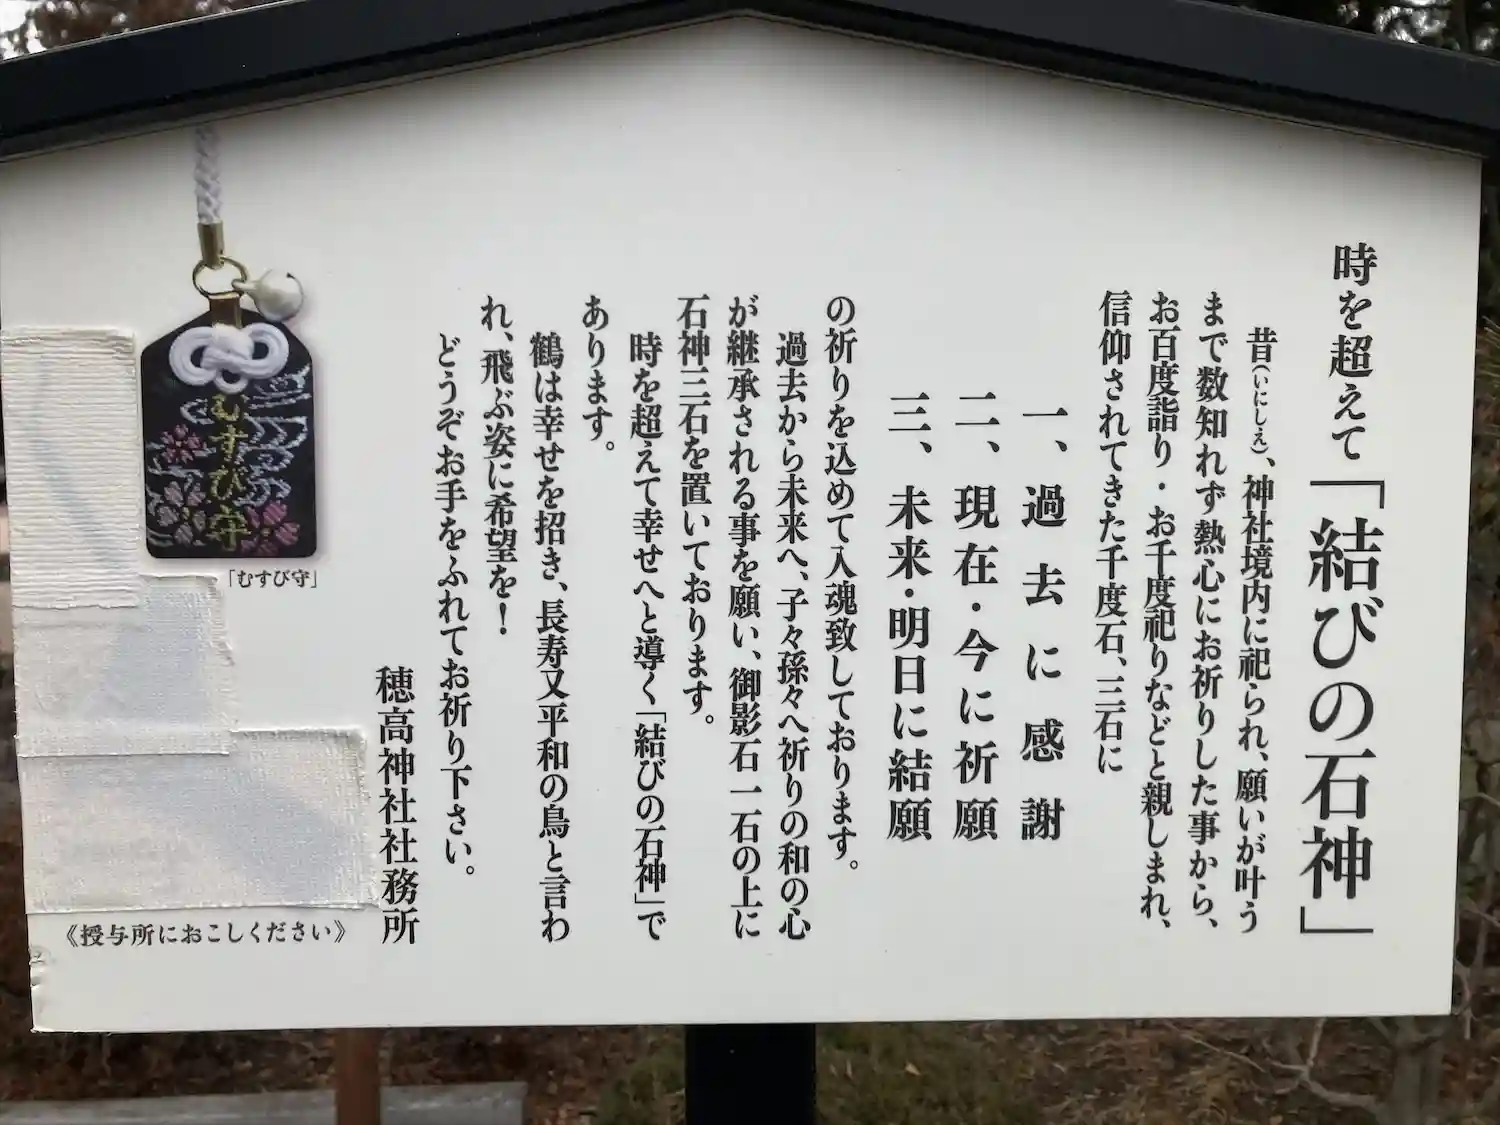 時を超えて「結びの石神」
昔(いにしえ)、神社境内に祀られ、願いが叶う
まで数知れず熱心にお祈りした事から、
お百度詣り・お千度祀りなどと親しまれ、
信仰されてきた千度石、三石に
一、過去に感謝
二、現在・今に祈願
三、未来・明日に結願
の祈りを込めて入魂致しております。
過去から未来へ、子々孫々へ祈りの和の心
が継承される事を願い、御影石一石の上に
石神三石を置いております。
時を超えて幸せへと導く「結びの石神」で
あります。
鶴は幸せを招き、長寿又平和の鳥と言わ
れ、飛ぶ姿に希望を!
どうぞお手をふれてお祈り下さい。
穂高神社社務所
むすび守
「むすび守」
《授与所におこしください》